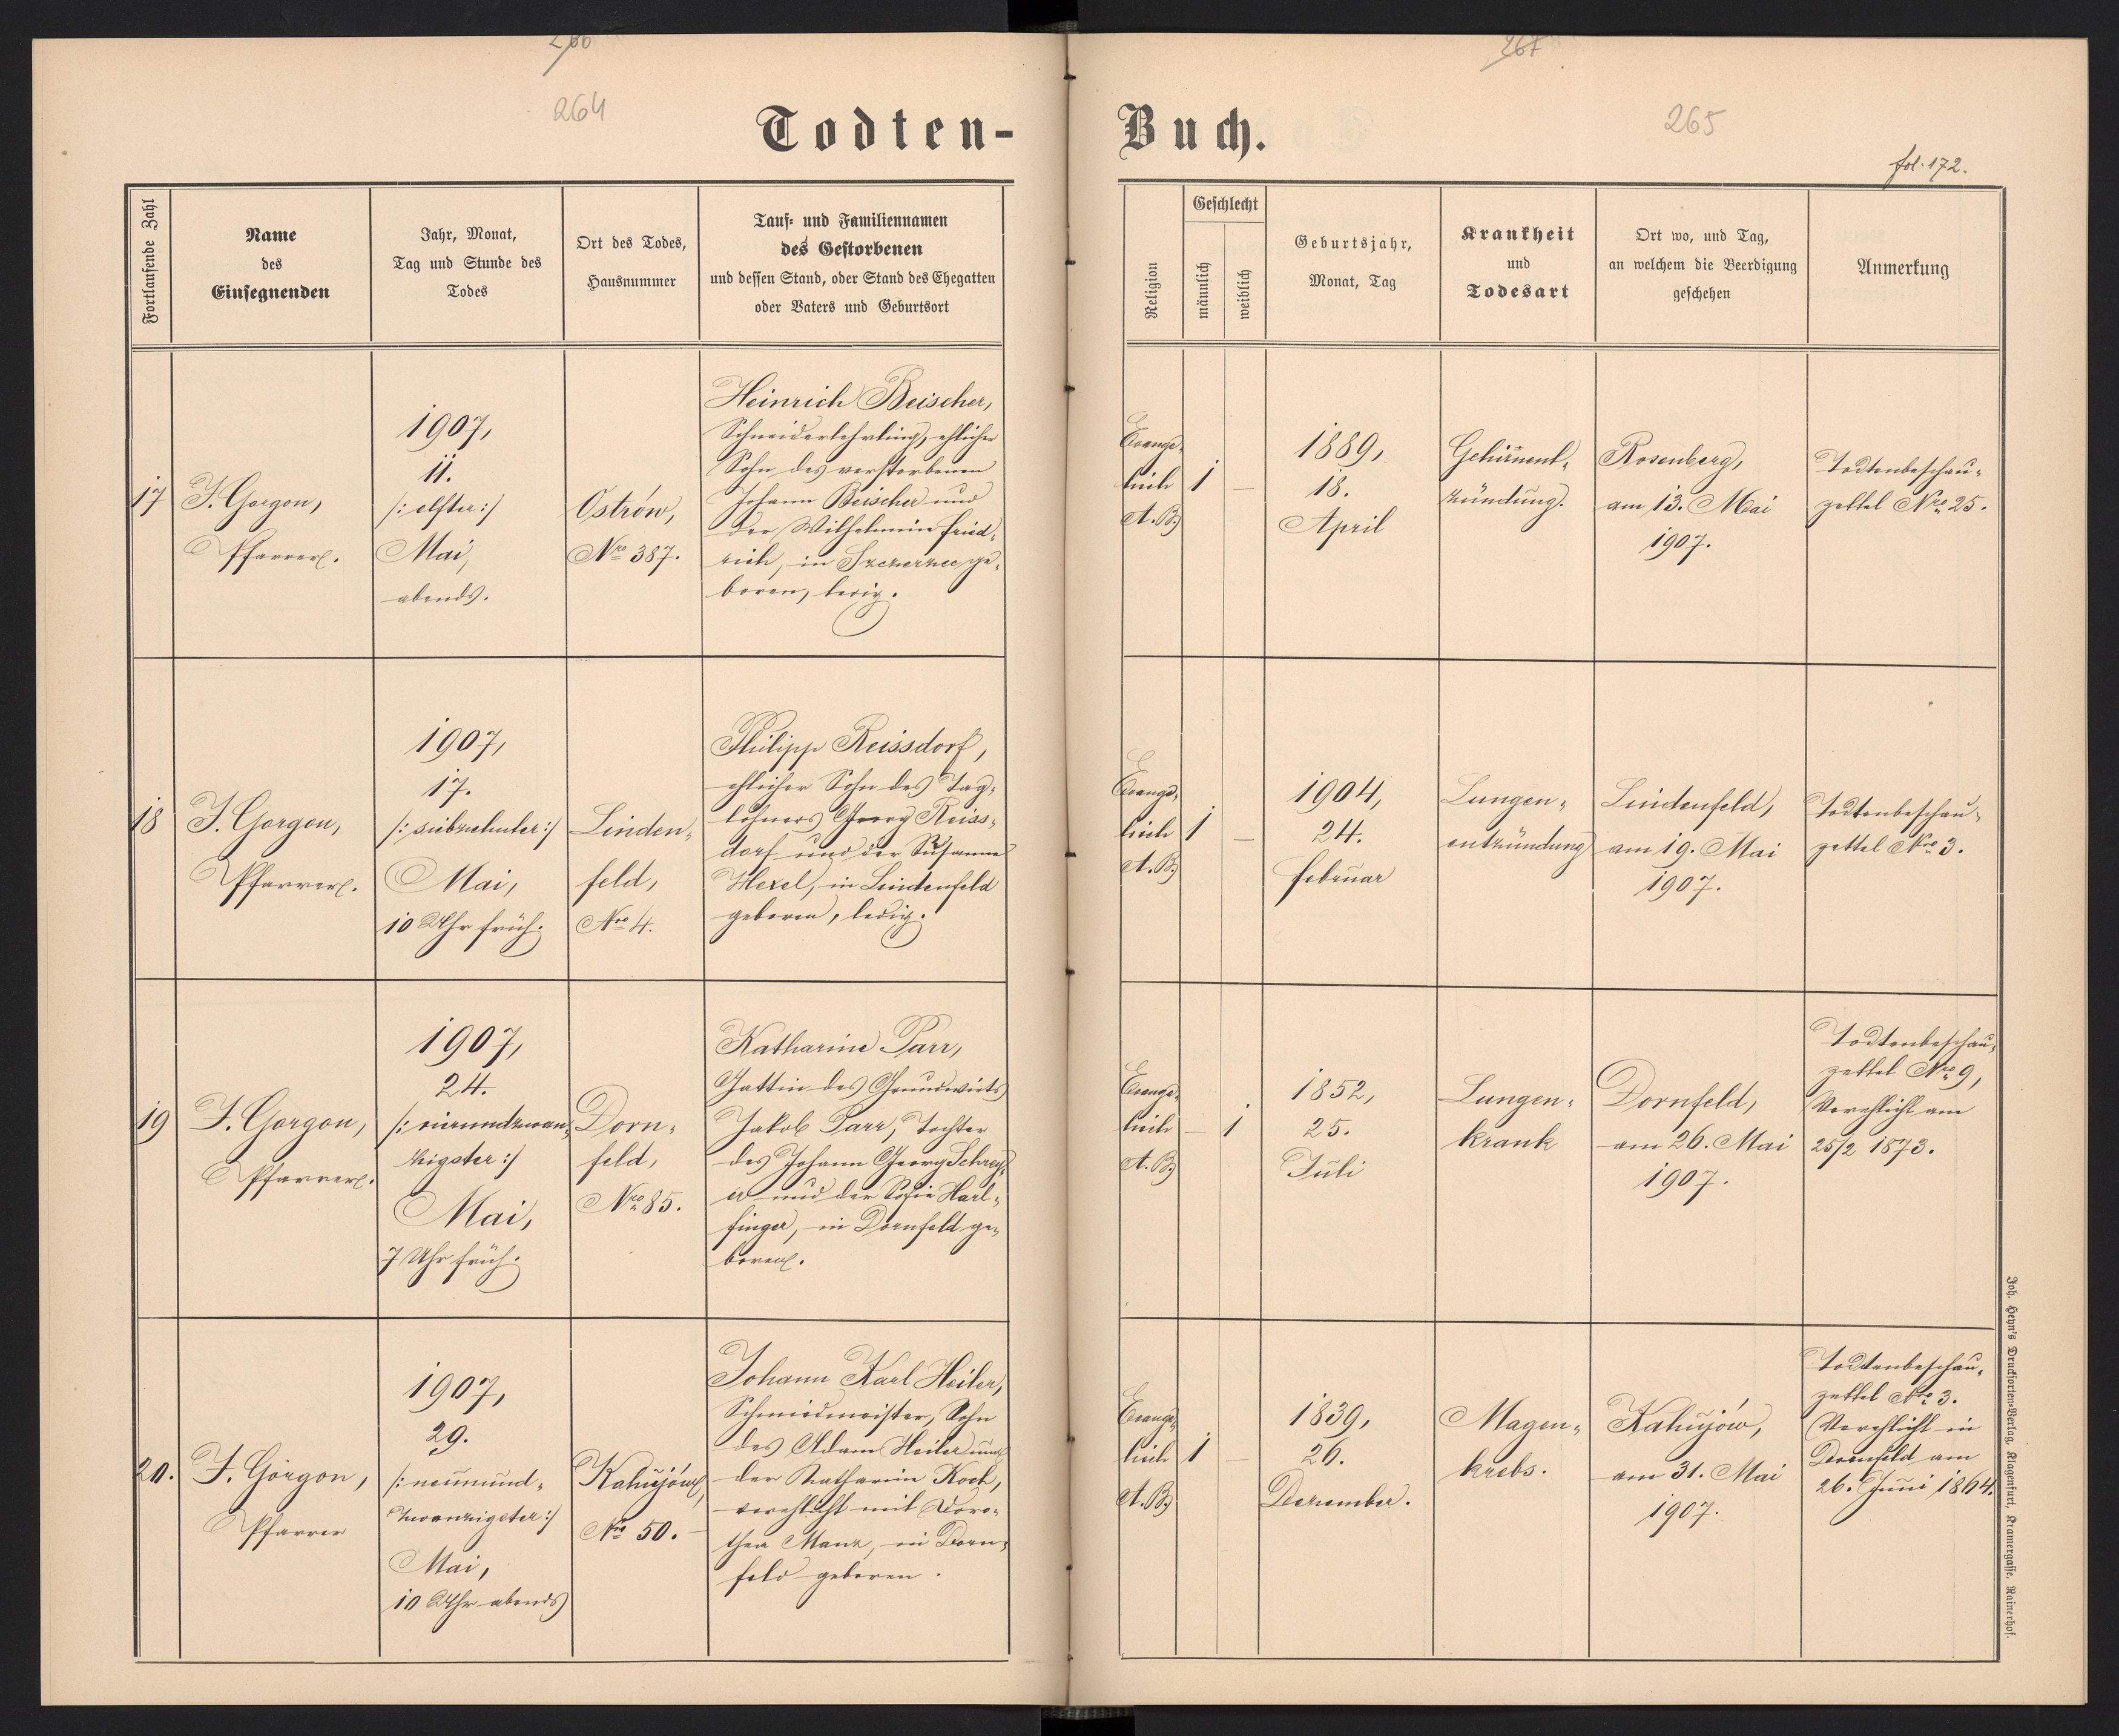 266
267
264
265
Todten-
Buch.
fol. 172.
Fortlaufende Zahl
Name
des
Einsegnenden
Jahr, Monat,
Tag und Stunde des
Todes
Ort des Todes,
Hausnummer
Tauf- und Familiennamen
des Gestorbenen
und dessen Stand, oder Stand des Ehegatten
oder Vaters und Geburtsort
Religion
Geschlecht
männlich
weiblich
Geburtsjahr,
Monat, Tag
Krankheit
und
Todesart
Ort wo, und Tag,
an welchem die Beerdigung
geschehen
Anmerkung
17
J. Gorgon,
Pfarrer.
1907,
11.
/: elfter :/
Mai,
abends.
Ostrów,
Nro 387.
Heinrich Beischer,
Schneiderlehrling, ehlicher
Sohn des verstorbenen
Johann Beischer und
der Wilhelmine Fried-
rich, in Szczerzec ge-
boren, ledig.
Evange-
lisch
A.B.
1
—
1889,
18.
April
Gehirnent-
zündung.
Rosenberg,
am 13. Mai
1907.
Todtenbeschau-
zettel Nro 25.
18
J. Gorgon,
Pfarrer.
1907,
17.
/: siebzehnter :/
Mai,
10 Uhr früh.
Linden-
feld,
Nro 4.
Philipp Reissdorf,
ehlicher Sohn des Tag-
löhners Georg Reiss-
dorf und der Susanna
Hexel, in Lindenfeld
geboren, ledig.
Evange-
lisch
A.B.
1
—
1904,
24.
Februar
Lungen-
entzündung
Lindenfeld,
am 19. Mai
1907.
Todtenbeschau-
zettel Nro 3.
19
J. Gorgon,
Pfarrer.
1907,
24.
/: vierundzwan-
zigster :/
Mai,
7 Uhr früh.
Dorn-
feld,
Nro 85.
Katharine Parr,
Gattin des Grundwirts
Jakob Parr, Tochter
des Johann Georg Schrey-
er und der Sofie Harl-
finger, in Dornfeld ge-
boren.
Evange-
lisch
A.B.
—
1
1852,
25.
Juli
Lungen-
krank
Dornfeld,
am 26. Mai
1907.
Todtenbeschau-
zettel Nro 9,
Verehlicht am
25/2 1873.
20.
J. Gorgon,
Pfarrer
1907,
29.
/: neunund-
zwanzigster :/
Mai,
10 Uhr abends
Kahujów,
Nro 50.
Johann Karl Heiler,
Schmiedmeister, Sohn
des Adam Heiler und
der Katharine Koch,
verehlicht mit Doro-
thea Manz, in Dorn-
feld geboren.
Evange-
lisch
A.B.
1
—
1839,
26.
Dezember.
Magen-
krebs.
Kahujów,
am 31. Mai
1907.
Todtenbeschau-
zettel Nro 3.
Verehlicht in
Dornfeld am
26. Juni 1864.
Joh. Heyn's Drucksorten-Verlag, Klagenfurt, Kramergasse, Rainerhof.